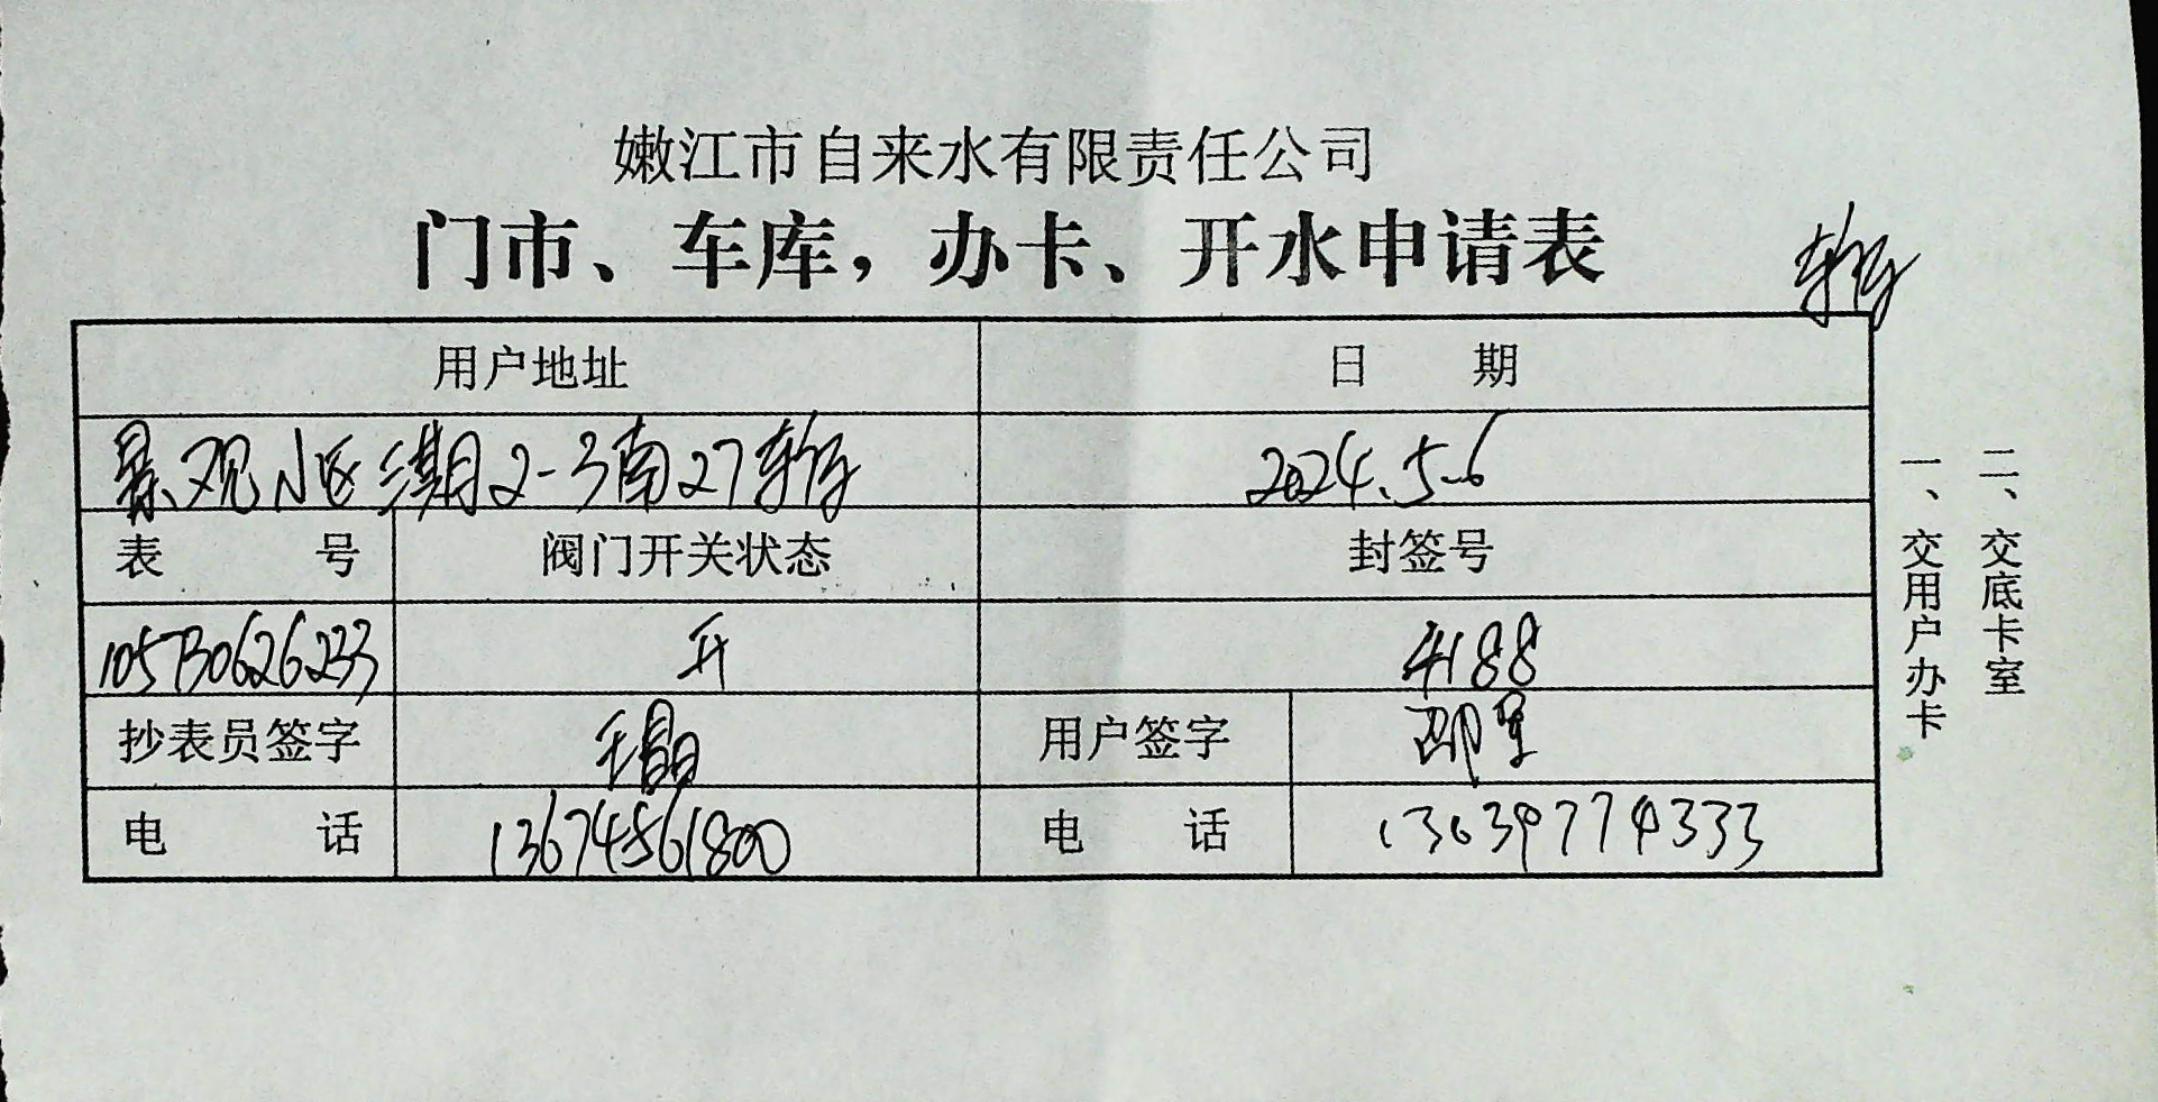 嫩江市自来水有限责任公司
门市、车库，办卡、开水申请表
车库
用户地址 日 期
景观小区三期2-3南27车库 2024.5-6
表 号 阀门开关状态 封签号
105730626233 开 4188
抄表员签字 王晶 用户签字 邵星
电 话 13674561800 电 话 13639774333
一、交用户办卡
二、交底卡室